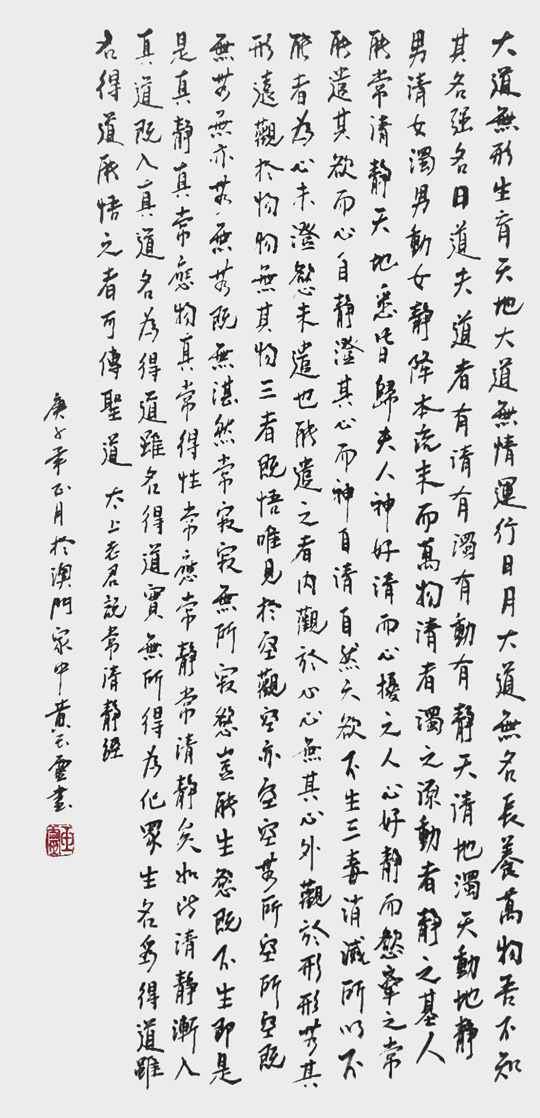 大道無形生育天地大道無情運行日月大道無名長養萬物吾不知
其名强名曰道夫道者有清有濁有動有靜天清地濁天動地靜
男清女濁男動女靜降本流末而萬物清者濁之源動者靜之基人
能常清靜天地悉皆歸夫人神好清而心擾之人心好靜而慾牽之常
能遣其欲而心自靜澄其心而神自清自然六欲不生三毒消滅所以不
能者為心未澄慾未遣也能遣之者內觀於心心無其心外觀於形形無其
形遠觀於物物無其物三者既悟唯見於空觀空亦空空無所空所空既
無無無亦無無無既無湛然常寂寂無所寂慾豈能生慾既不生即是
是真靜真常應物真常得性常應常靜常清靜矣如此清靜漸入
真道既入真道名為得道雖名得道實無所得為化眾生名為得道雖
名得道能悟之者可傳聖道 太上老君說常清靜經
庚子年正月於澳門家中黃雲書